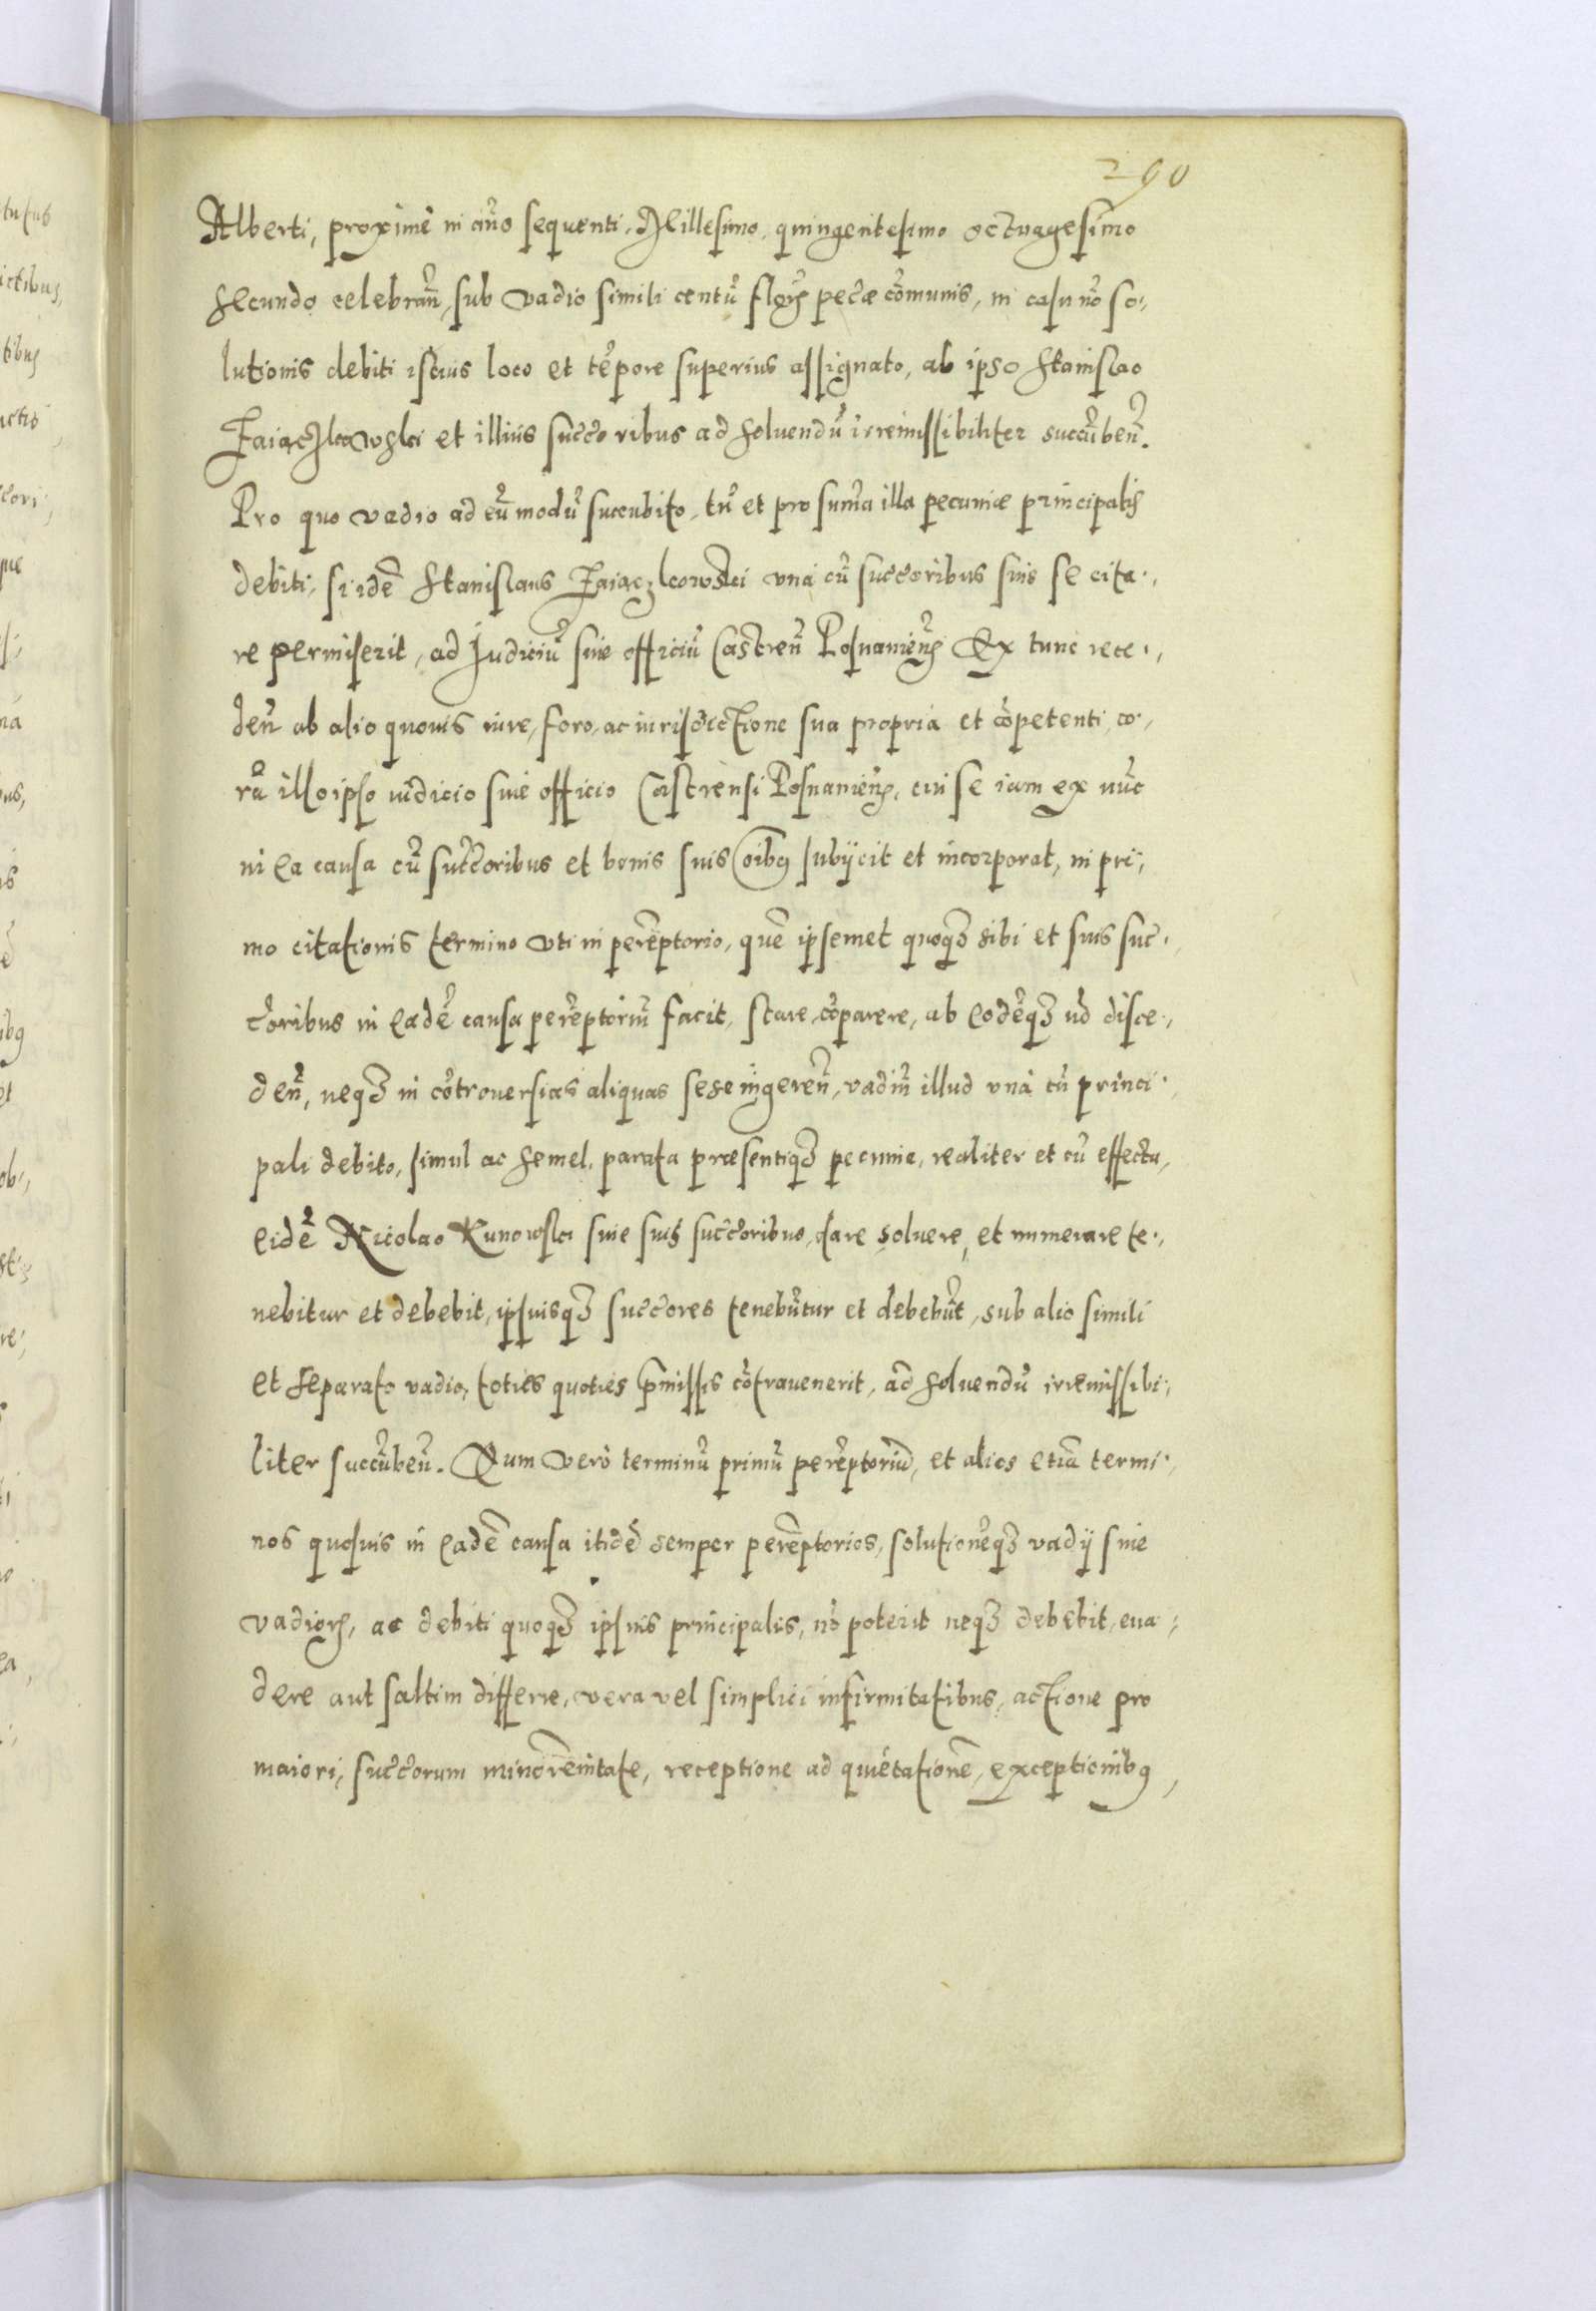 290
Alberti, proxime in año sequenti, Millesimo, quingentesimo octuagesimo
secundo celebrañ, sub vadio simili centũ floꝝ pecčæ cõmunis, in casu nõ so.,
lutionis debiti istius loco et tẽpore superius assignato, ab ipso Stanislao
Jaiaczkowski et illius succ̃oribus ad soluendũ irremissibiliter succũbeñ.
Pro quo vadio ad eũ modũ succubito, tũ et pro sum̃a illa pecuniæ principalis
debiti, si idẽ Stanislaus Jaiaczkowski vná cũ succ̃oribus suis se cita.,
re permiserit, ad Judiciũ siue officiũ Castreñ Posnanieñs Ex tunc rece.,
deñ ab alio quouis iure, foro, ac iurisdictione sua propria et cõpetenti, co.,
rã illo ipso iudicio siue officio Castrensi Posnanieñs, cui se iam ex nũc
in ea causa cũ succ̃oribus et bonis suis oĩbꝯ subijcit et incorporat, in pri.,
mo citationis termino vti in perẽptorio, quẽ ipsemet quoqꝫ sibi et suis suc̃.,
c̃oribus in eadẽ causa perẽptoriũ facit, stare, cõparere, ab eodẽqꝫ nõ disce.,
deñ, neqꝫ in cõtrouersias aliquas sese ingereñ, vadiũ illud vná cũ princi.,
pali debito, simul ac semel, parata præsentiqꝫ pecunia, realiter et cũ effectu,
eidẽ Nicolao Kunowski siue suis succ̃oribus, dare soluere, et numerare te.,
nebitur et debebit, ipsiusqꝫ succ̃ores tenebũtur et debebũt, sub alio simili
et separato vadio, toties quoties p̃missis cõtrauenerit, ad soluendũ irremissibi.,
liter succũbeñ. Quem verò terminũ primũ perẽptoriũ, et alios etiã termi.,
nos quosuis in eadẽ causa itidẽ semper perẽptorios, solutionẽqꝫ vadij siue
vadioꝝ, ac debiti quoqꝫ ipsius principalis, nõ poterit neqꝫ debebit, eua.,
dere aut saltim differre, vera vel simplici infirmitatibus, actione pro
maiori, succ̃orum minorẽnitate, receptione ad quietationẽ, exceptionibꝯ,